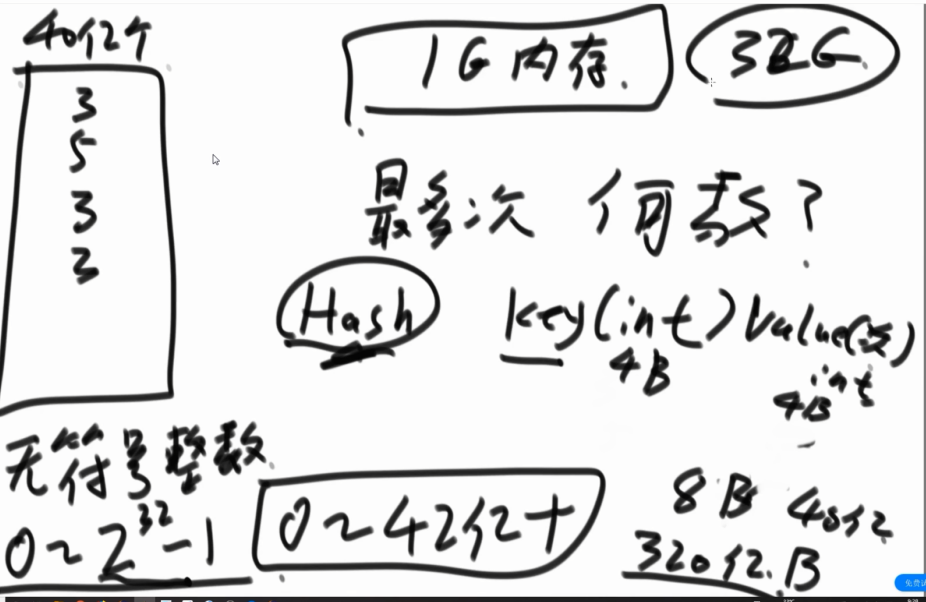 40亿个
1G内存.
32G
3
5
3
2
最多次 何数?
Hash key(int) Value(次)
4B
int
4B
无符号整数
0~2^32-1
0~42亿+
8B 40亿
320亿.B
免费